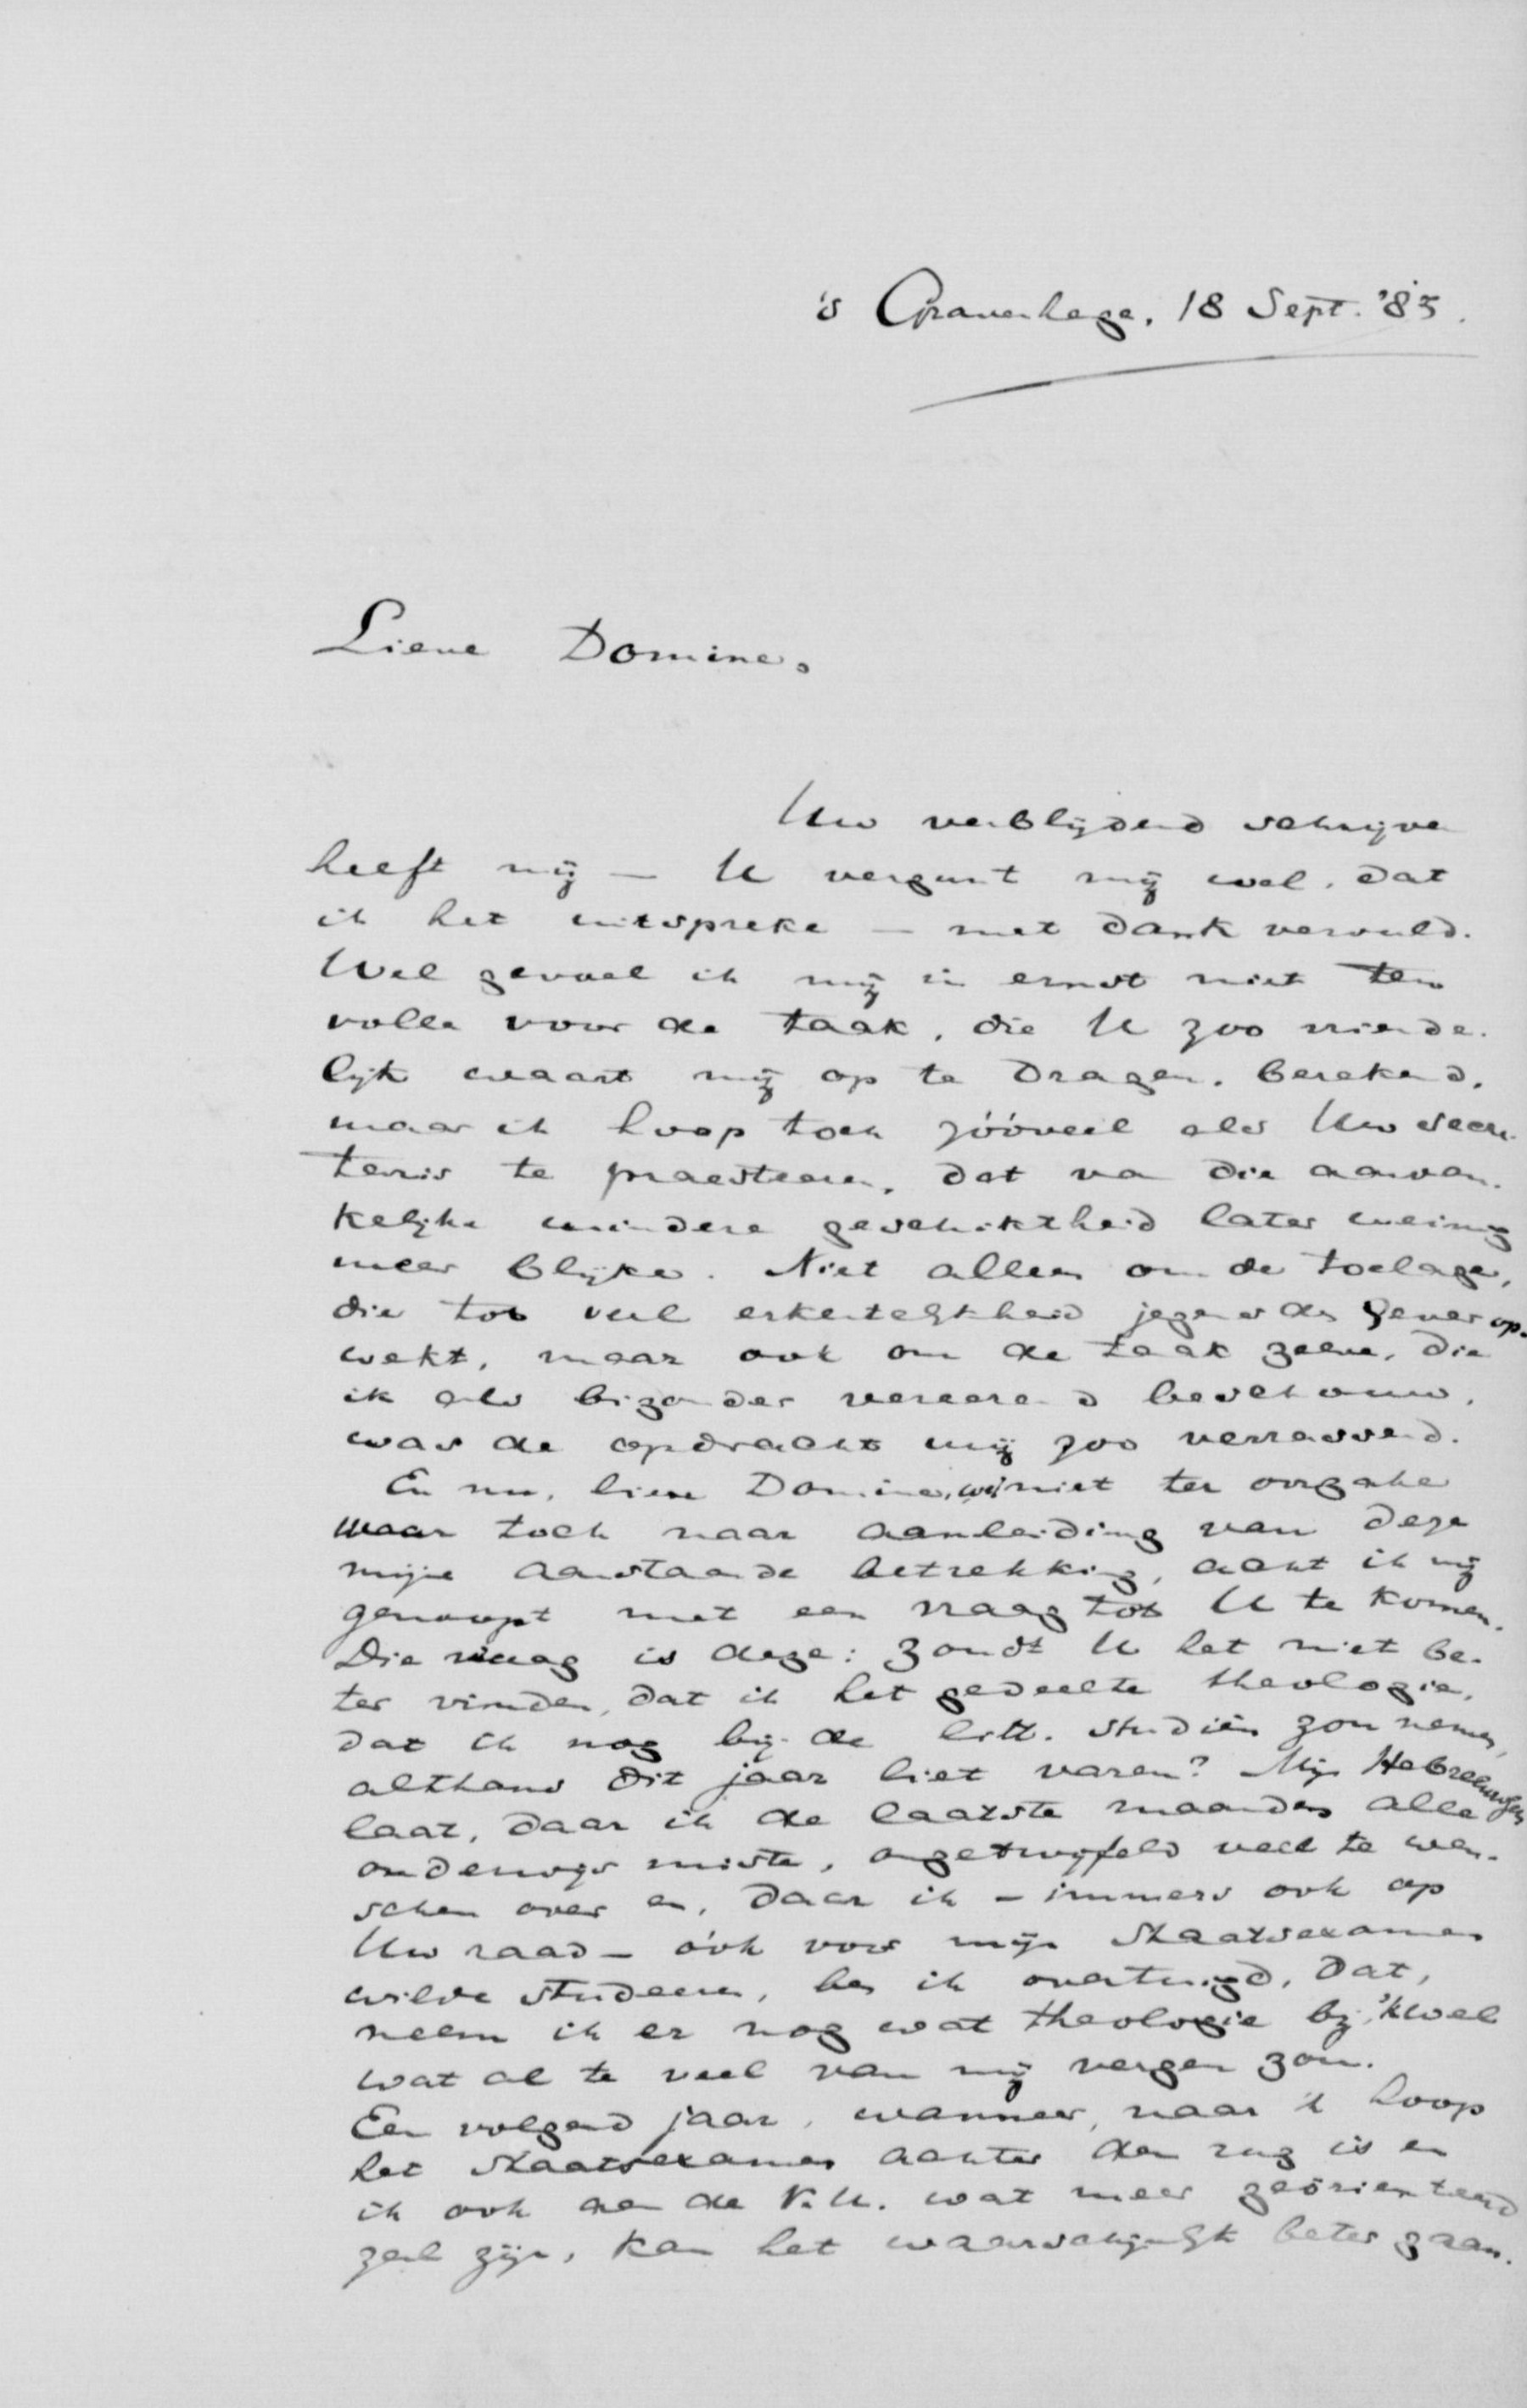 's Gravenhage, 18 Sept. '85.
Lieve Domine.
Uw verblijdend schrijven
heeft mij — U vergunt mij wel, dat
ik het uitspreke — met dank vervuld.
Wel gevoel ik mij in ernst niet ten
volle voor de taak, die U zoo vriende-
lijk waart mij op te dragen, berekend,
maar ik hoop toch zóóveel als Uw secre-
taris te praesteeren, dat van die aanvan-
kelijke mindere geschiktheid later weinig
meer blijke. Niet alleen om de toelage,
die tot veel erkentelijkheid jegens den Gever op-
wekt, maar ook om de taak zelve, die
ik als bizonder vereerend beschouw,
was de opdracht mij zoo verrassend.
En nu, lieve Domine, niet ter oorzake
maar toch naar aanleiding van deze
mijne aanstaande betrekking, acht ik mij
genoopt met een vraag tot U te komen.
Die vraag is deze: Zoudt U het niet be-
ter vinden, dat ik het gedeelte theologie,
dat ik nog bij de litt. studiën zou nemen,
althans dit jaar liet varen? Mijn Hebreeuwsch
laat, daar ik de laatste maanden alle
onderwijs miste, ongetwijfeld veel te wen-
schen over en, daar ik – immers ook op
Uw raad – óók voor mijn Staatsexamen
wilde studeeren, ben ik overtuigd, dat,
neem ik er nog wat theologie bij, 'k wel
wat al te veel van mij vergen zou.
Een volgend jaar, wanneer, naar 'k hoop
het Staatsexamen achter den rug is en
ik ook aan de V.U. wat meer georiënteerd
zal zijn, kan het waarschijnlijk beter gaan.